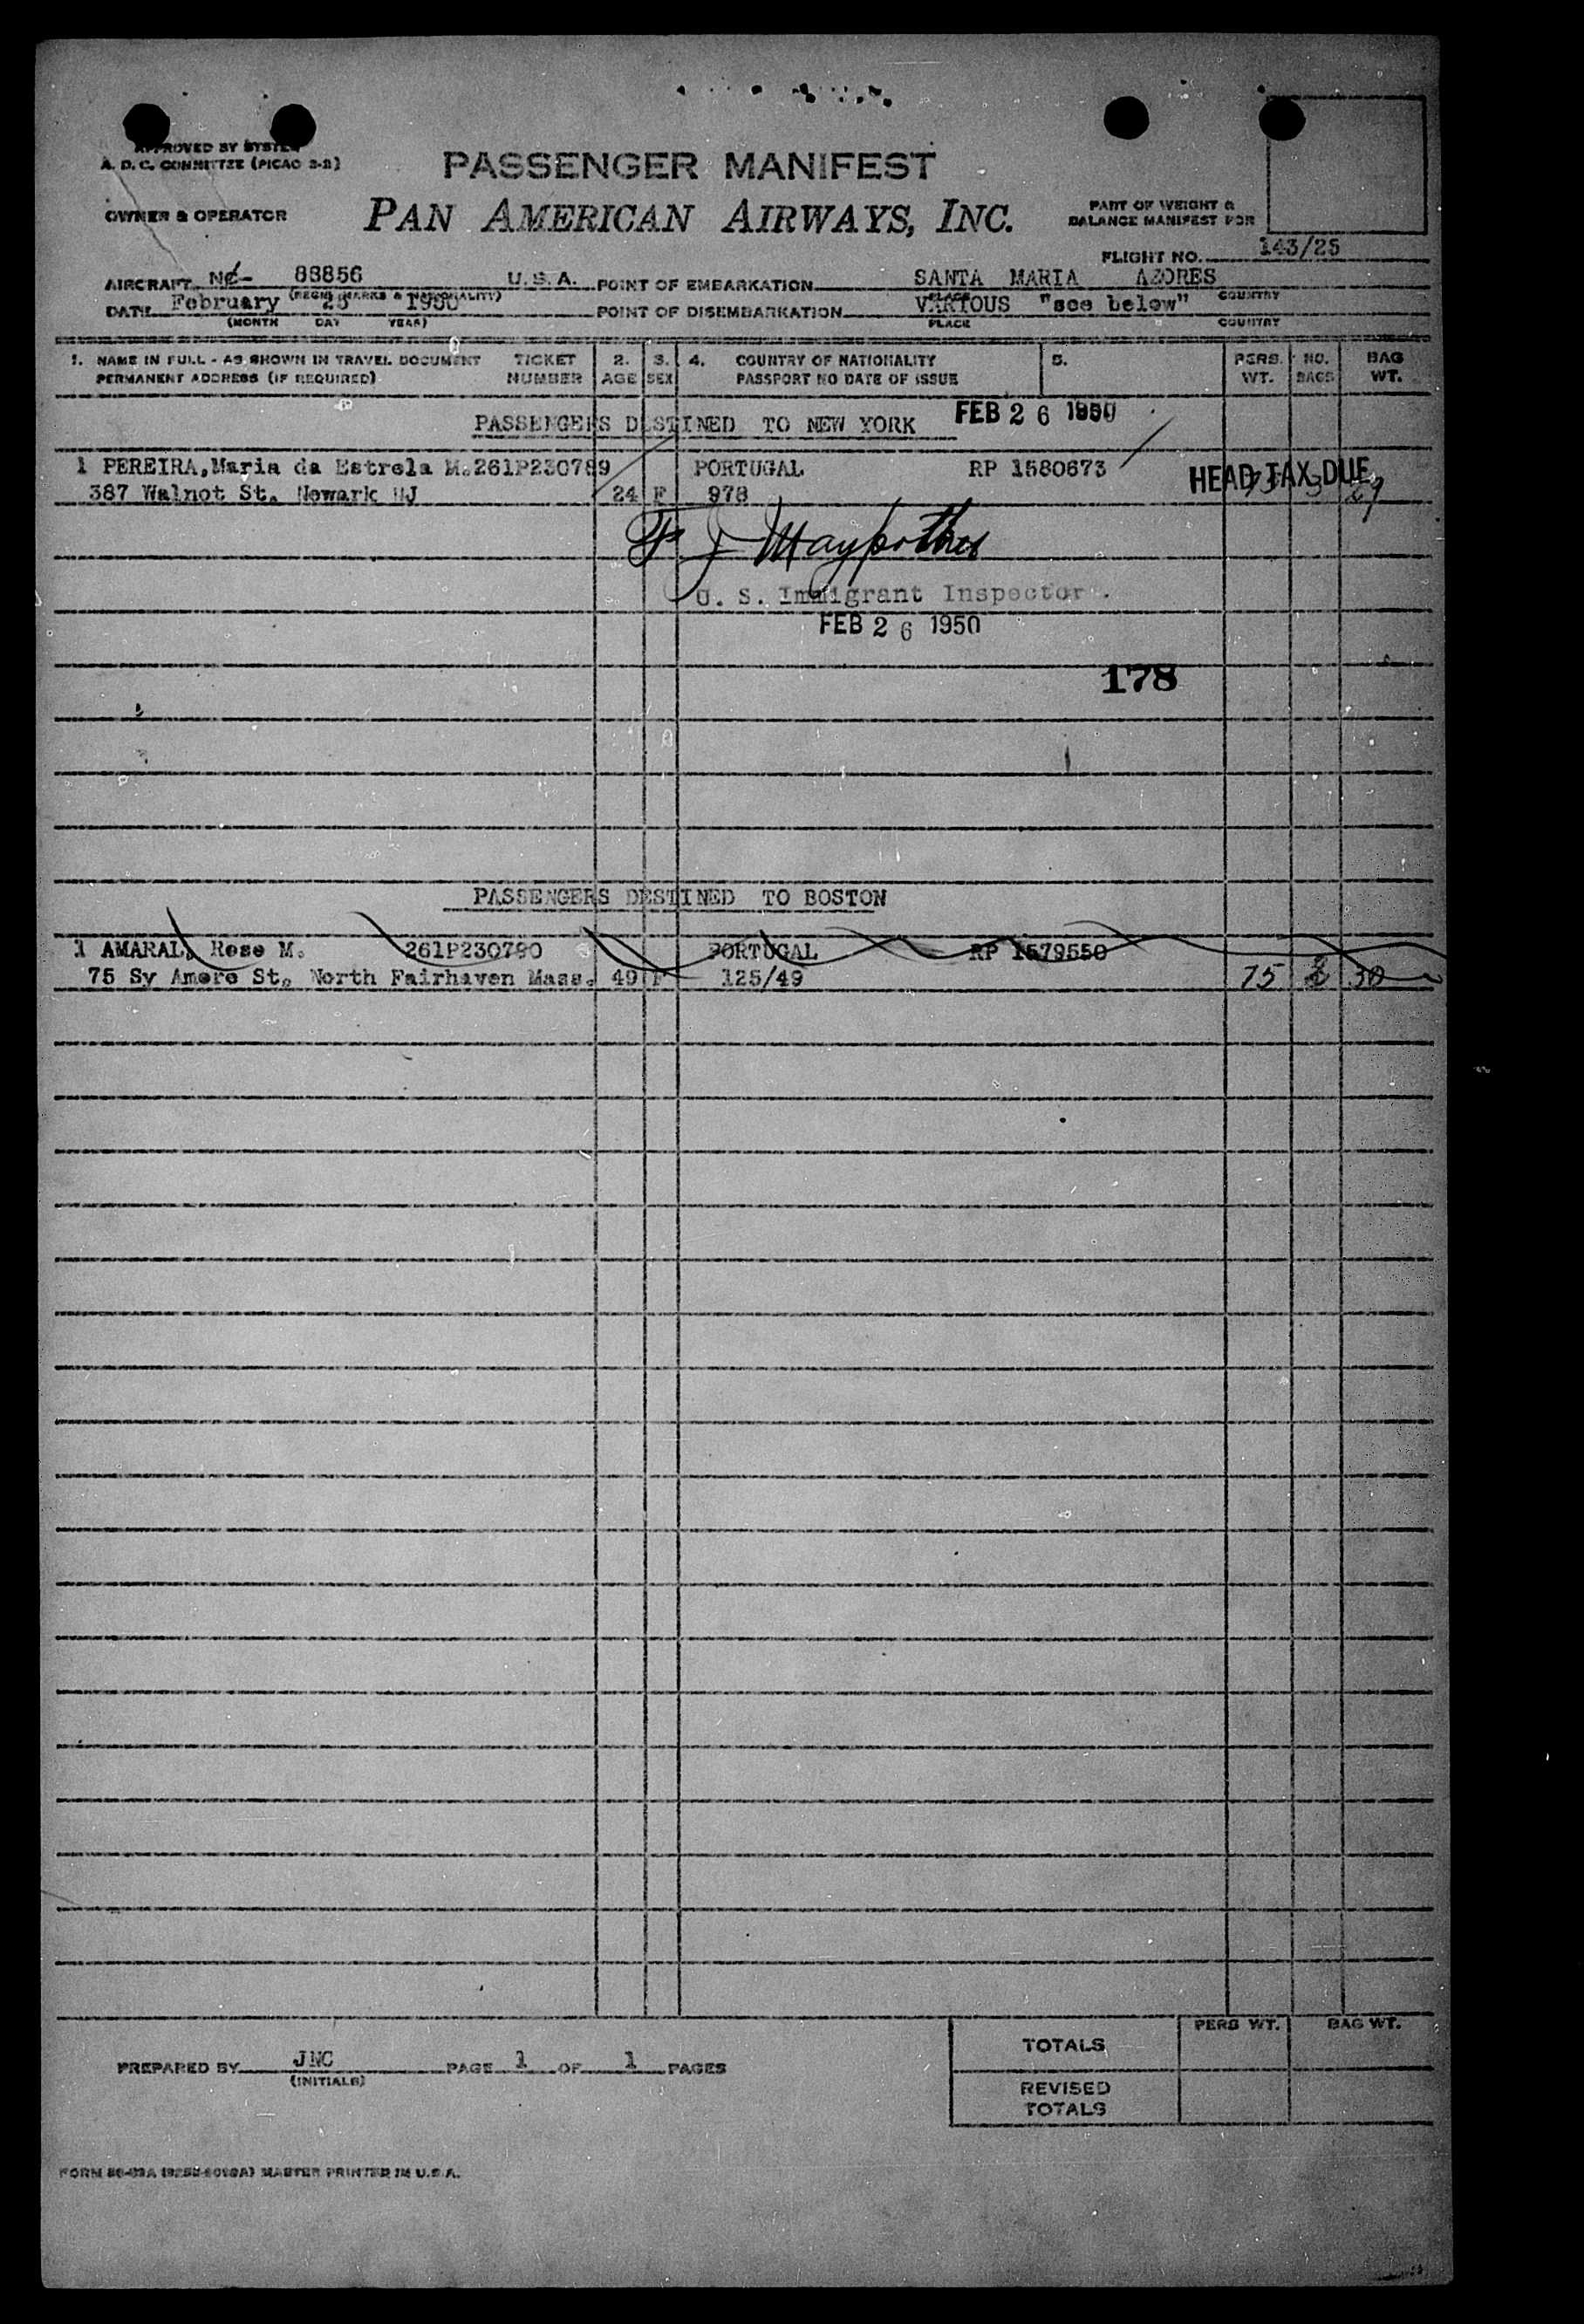 APPROVED BY SYSTEM
A. D. C. COMMITTEE (PICAO 2-2)
PASSENGER MANIFEST
OWNER & OPERATOR
PAN AMERICAN AIRWAYS, INC.
PART OF WEIGHT &
BALANCE MANIFEST FOR
FLIGHT NO. 143/25
AIRCRAFT NC- 88856 U.S.A. POINT OF EMBARKATION SANTA MARIA AZORES
(REGIS. MARKS & NATIONALITY) PLACE COUNTRY
DATE February 25 1950 POINT OF DISEMBARKATION VARIOUS "see below"
(MONTH DAY YEAR) PLACE COUNTRY
1. NAME IN FULL - AS SHOWN IN TRAVEL DOCUMENT TICKET 2. 3. 4. COUNTRY OF NATIONALITY 5. PERS. NO. BAG
PERMANENT ADDRESS (IF REQUIRED) NUMBER AGE SEX PASSPORT NO DATE OF ISSUE WT. BAGS WT.
PASSENGERS DESTINED TO NEW YORK FEB 26 1950
1 PEREIRA,Maria da Estrela M.261P230789 PORTUGAL RP 1580673 HEAD TAX DUE
387 Walnot St. Newark NJ 24 F 978
F J
U. S. Immigrant Inspector.
FEB 26 1950
178
PASSENGERS DESTINED TO BOSTON
1 AMARAL, Rose M. 261P230790 PORTUGAL RP 1579550
75 Sy Amore St. North Fairhaven Mass. 49 F 125/49 75 30
PERS WT. BAG WT.
TOTALS
PREPARED BY JNC PAGE 1 OF 1 PAGES
(INITIALS)
REVISED
TOTALS
MASTER PRINTED IN U.S.A.